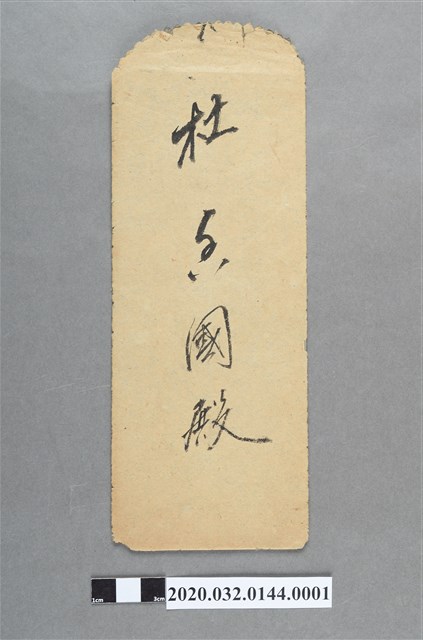 杜香國殿
1cm 3cm
2020.032.0144.0001